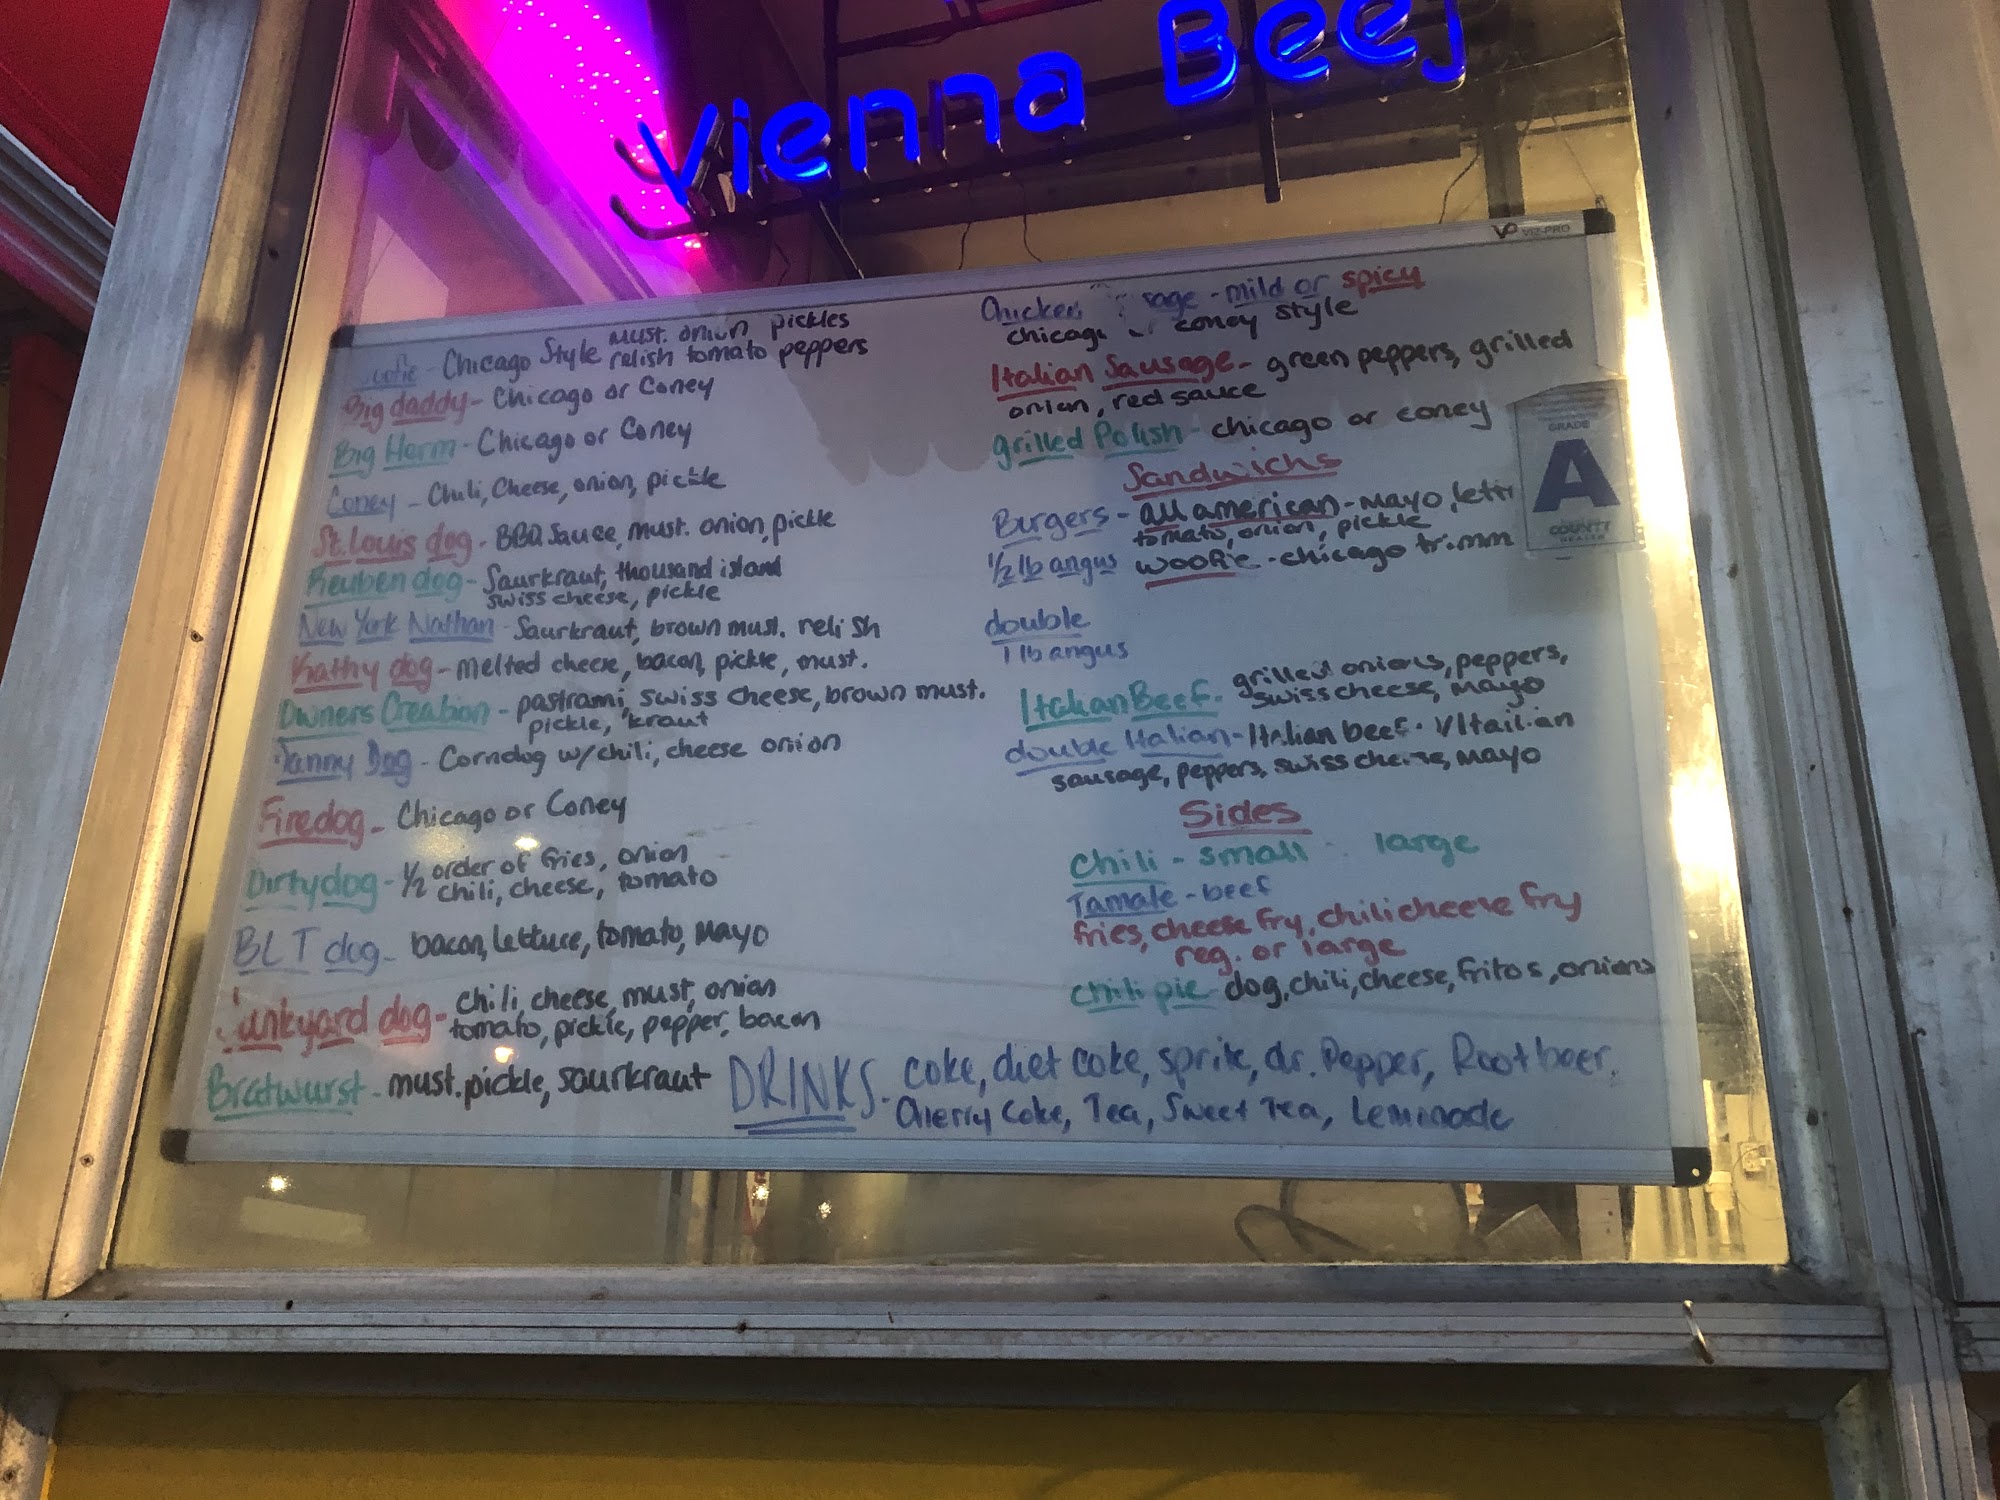 Vienna Beef
VIZ-PRO
Chicago Style must. onion pickles
relish tomato peppers
Big daddy - Chicago or Coney
Big Herm - Chicago or Coney
Coney - Chili, Cheese, onion, pickle
St. Louis dog - BBQ Sauce, must. onion, pickle
Reuben dog - Saurkraut, thousand island
swiss cheese, pickle
New York Nathan - Saurkraut, brown must. relish
Kathy dog - melted cheese, bacon, pickle, must.
Owners Creation - pastrami, swiss cheese, brown must.
pickle, kraut
Dog - Corndog w/ chili, cheese onion
Firedog - Chicago or Coney
Dirtydog - 1/2 order of fries, onion
chili, cheese, tomato
BLT dog - bacon, lettuce, tomato, mayo
Junkyard dog - chili cheese, must, onion
tomato, pickle, pepper, bacon
Bratwurst - must. pickle, saurkraut
Chicken - mild or spicy
coney style
Italian Sausage - green peppers, grilled
onion, red sauce
grilled Polish - chicago or coney
Sandwichs
Burgers - all american - mayo,
tomato, onion, pickle
1/2 lb angus woofie - chicago
double
1 lb angus
Italian Beef - grilled onions, peppers,
swiss cheese, mayo
double Italian - Italian beef
sausage, peppers, swiss cheese, mayo
Sides
Chili - small large
Tamale - beef
fries, cheese fry, chili cheese fry
reg. or large
chili pie - dog, chili, cheese, fritos, onions
DRINKS - coke, diet coke, sprite, dr. Pepper, Root beer,
Cherry Coke, Tea, Sweet Tea, Lemonade
GRADE
A
COUNTY